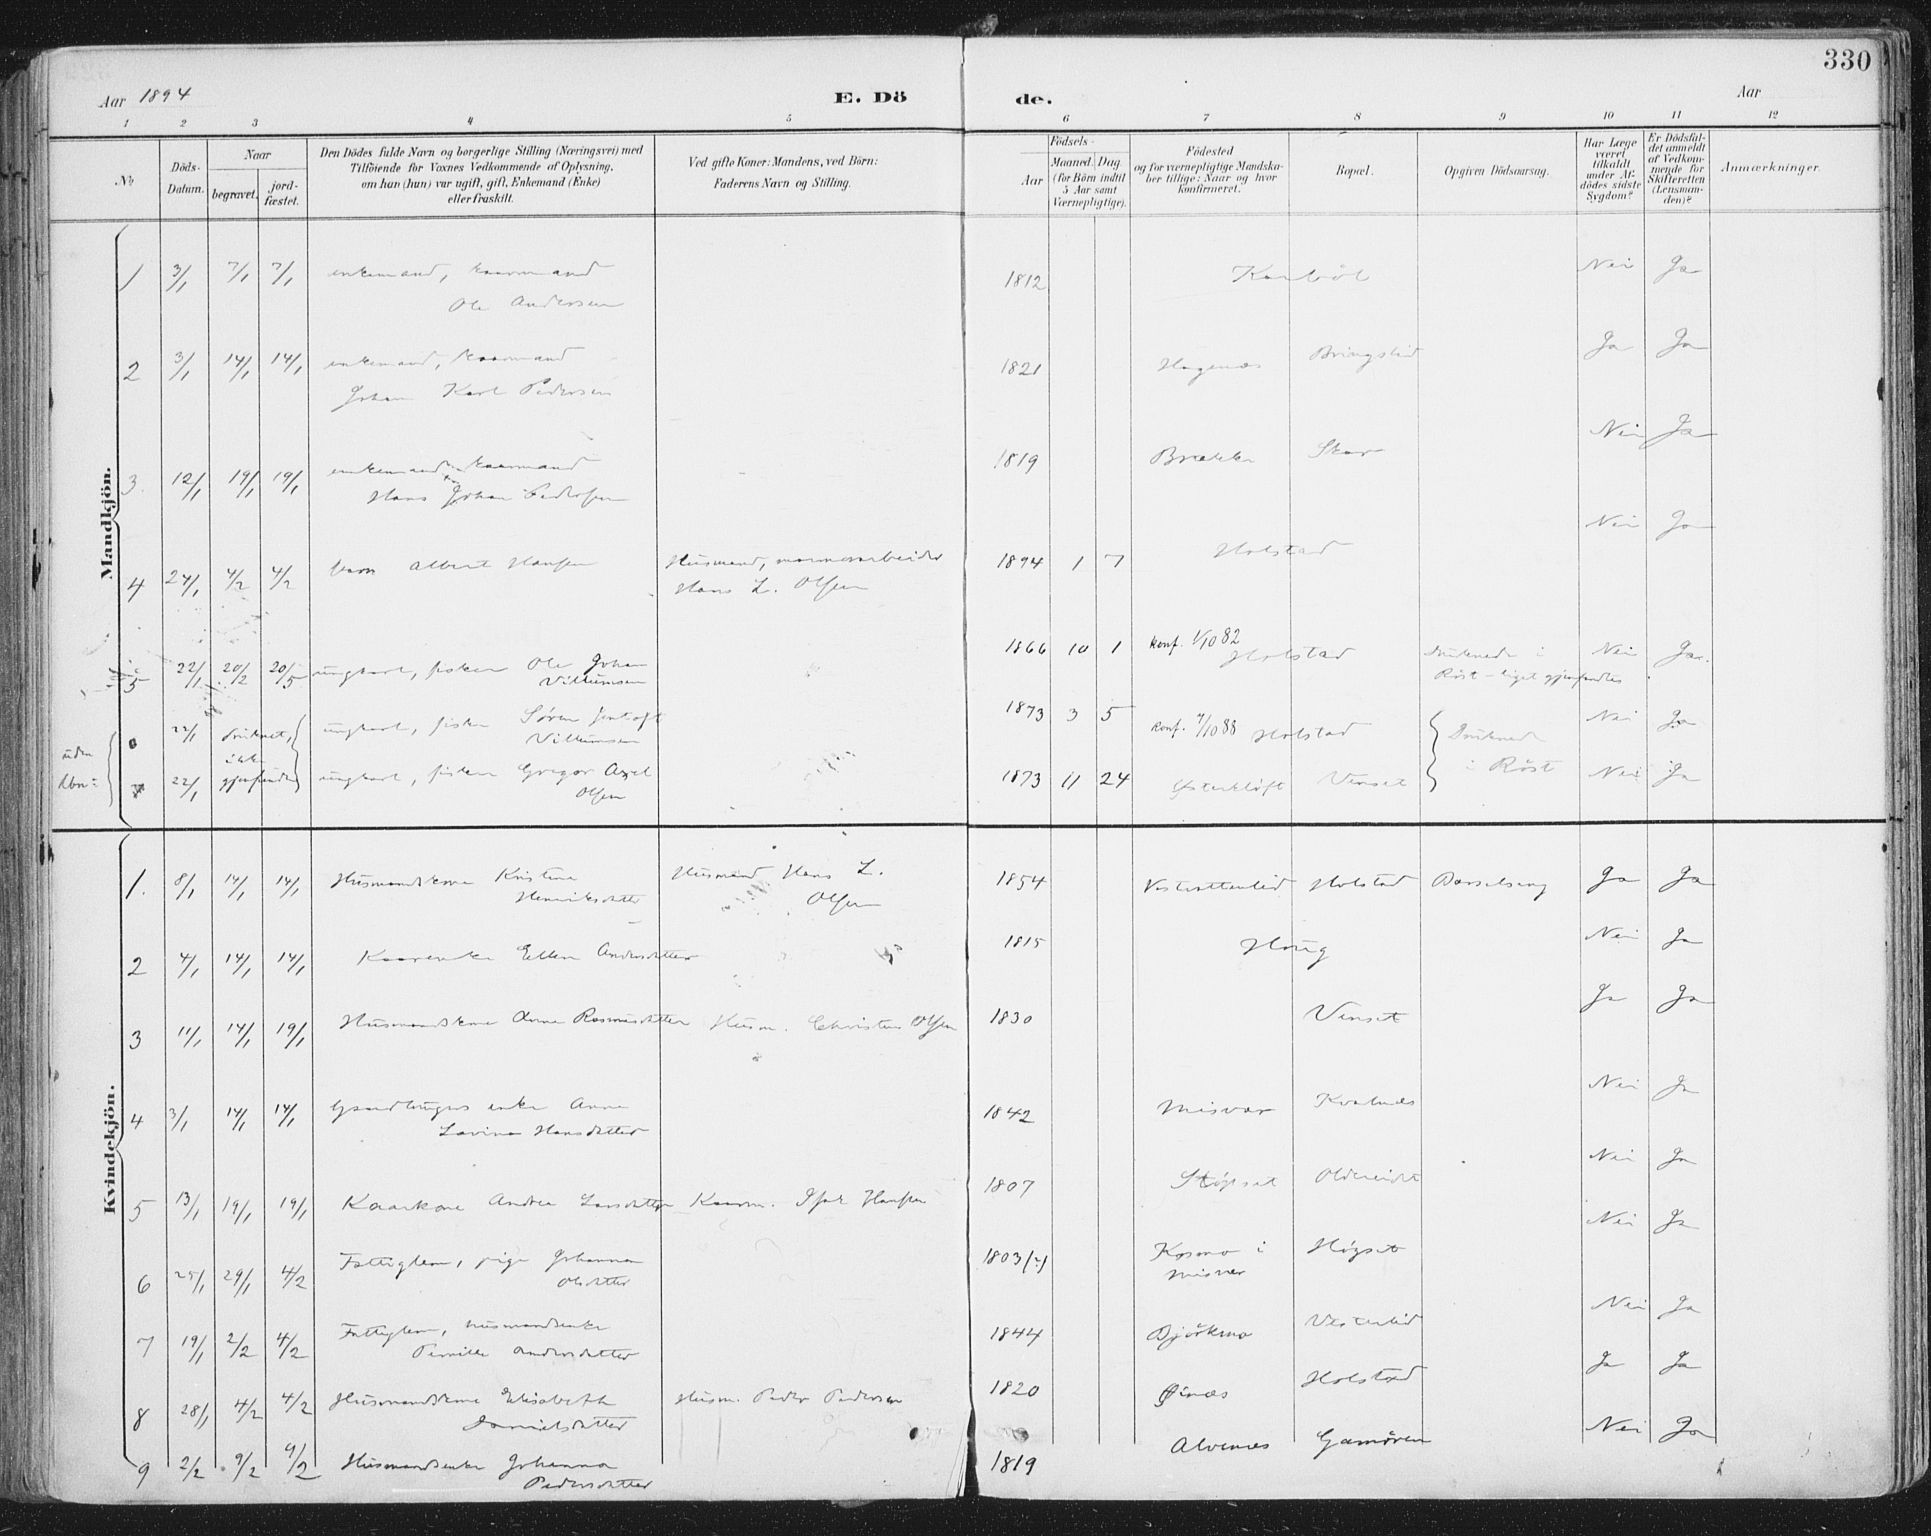 330
Aar 1894 E. Dö de. Aar
1 2 3 4 5 6 7 8 9 10 11 12
No
Döds-Datum.
Naar
begravet.
jord-fæstet.
Den Dödes fulde Navn og borgerlige Stilling (Næringsvei) med
Tilföiende for Voxnes Vedkommende af Oplysning,
om han (hun) var ugift, gift, Enkemand (Enke)
eller fraskilt.
Ved gifte Koner: Mandens, ved Börn:
Faderens Navn og Stilling.
Födsels-
Aar
Maaned. Dag.
(for Börn indtil
5 Aar samt
Værnepligtige).
Födested
og for værnepligtige Mandska-
ber tillige: Naar og hvor
konfirmeret.
Bopæl.
Opgiven Dödsaarsag.
Har Læge
været
tilkaldt
under Af-
dödes sidste
Sygdom?
Er Dödsfal-
det anmeldt
af Vedkom-
mende for
Skifteretten
(Lensman-
den)?
Anmærkninger.
Mandkjön.
1 3/1 7/1 7/1 enkemand, kaarmand 1812 Nei Ja
Ole Andersen
2 3/1 14/1 14/1 enkemand, kaarmand 1821 Hagenæs Bringslid Ja Ja
Johan Karl Pedersen
3. 12/1 19/1 19/1 enkemand kaarmand 1819 Brække Skar Nei Ja
Hans Johan Pedersen
4 24/1 4/2 4/2 barn Albert Hansen Husmand, marmorarbeider 1894 1 7 Holstad Nei Ja
Hans L. Olsen
5 22/1 20/2 20/5 ungkarl, fisker Ole Johan 1866 10 1 konf. 1/10 82 Holstad Druknede i Nei Ja.
Vilumsen Röst - liget gjenfandtes
uden Nbn:
6 22/1 druknet, ikke gjenfundet ungkarl, fisker Søren Jentoft 1873 3 5 konf. 7/10 88 Holstad Druknede i Röst Nei Ja
Vilumsen
7 22/1 ungkarl, fisker Gregor Axel 1873 11 24 Østerkløft Venset Nei Ja
Olsen
Kvindekjön.
1. 8/1 14/1 14/1 Husmandskone Kristine Husmand Hans L. 1854 Holstad Barselseng Ja Ja
Henriksdatter Olsen
2 4/1 14/1 14/1 Kaarenke Ellen Andersdatter 1815 Houg Nei Ja
3 11/1 14/1 19/1 Husmandskone Anne Rasmusdatter Husm. Christen Olsen 1830 Venset Ja Ja
4 3/1 14/1 14/1 Gaardbrugers enke Anne 1842 Misvær Kvalnæs Nei Ja
Lavina Hansdatter
5 13/1 19/1 19/1 Kaarkone Andrea Larsdatter Kaarm. Isak Hansen 1807 Støpset Oldereidet Nei Ja
6 25/1 29/1 4/2 Fattiglem, pige Johanna 1803(?) Kosmo i Høgset Nei Ja
Olsdatter Misvær
7 19/1 2/2 4/2 Fattiglem, husmandsenke 1844 Björkmo Vesterlid Nei Ja
Pernille Andersdatter
8 28/1 4/2 4/2 Husmandskone Elisabeth Husm. Peder Pedersen 1820 Øinæs Holstad Ja Ja
Danielsdatter
9 2/2 9/2 9/2 Husmandsenke Johanna 1819 Alvenæs Gamören Nei Ja
Pedersdatter